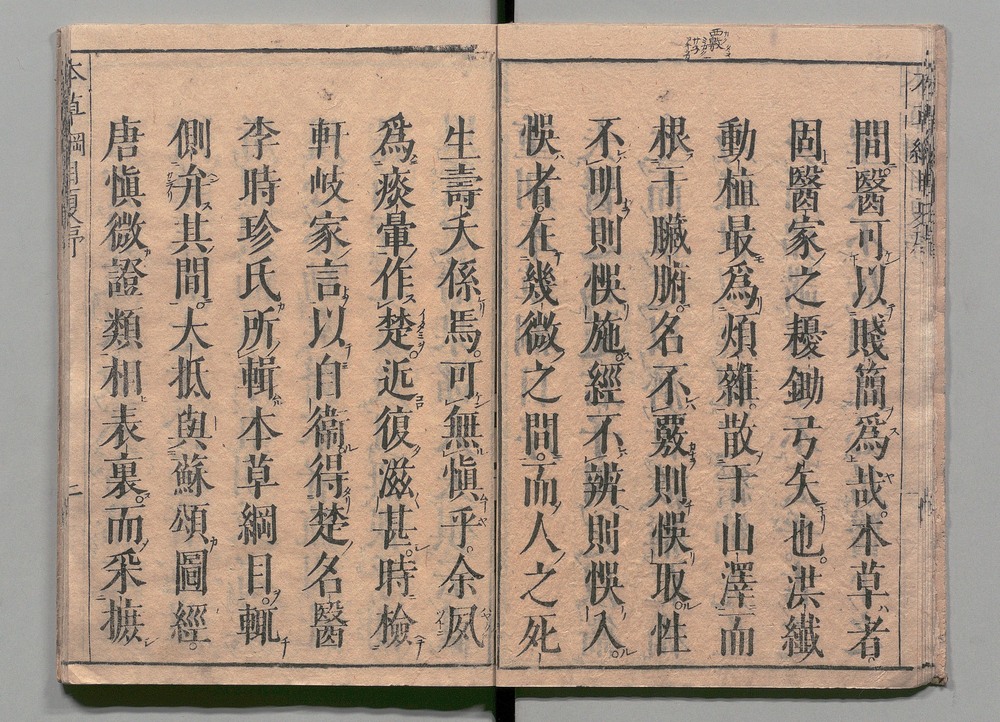 間醫可以賤簡爲哉本草者
固醫家之耰鋤弓矢也洪纖
動植最爲煩雜散于山澤而
根于臟腑名不覈則悞取性
不明則悞施經不辨則悞入
悞者在幾微之間而人之死
生壽夭係焉可無愼乎余夙
爲痰暈作楚近復滋甚時檢
軒岐家言以自衞得楚名醫
李時珍氏所輯本草綱目輒
側弁其間大抵與蘇頌圖經
唐愼微證類相表裏而釆摭
本草綱目夏序
二